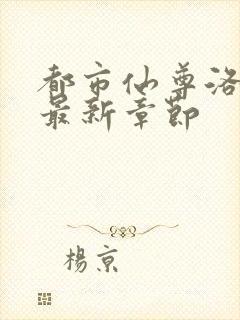 都市仙尊洛
最新章節
楊京